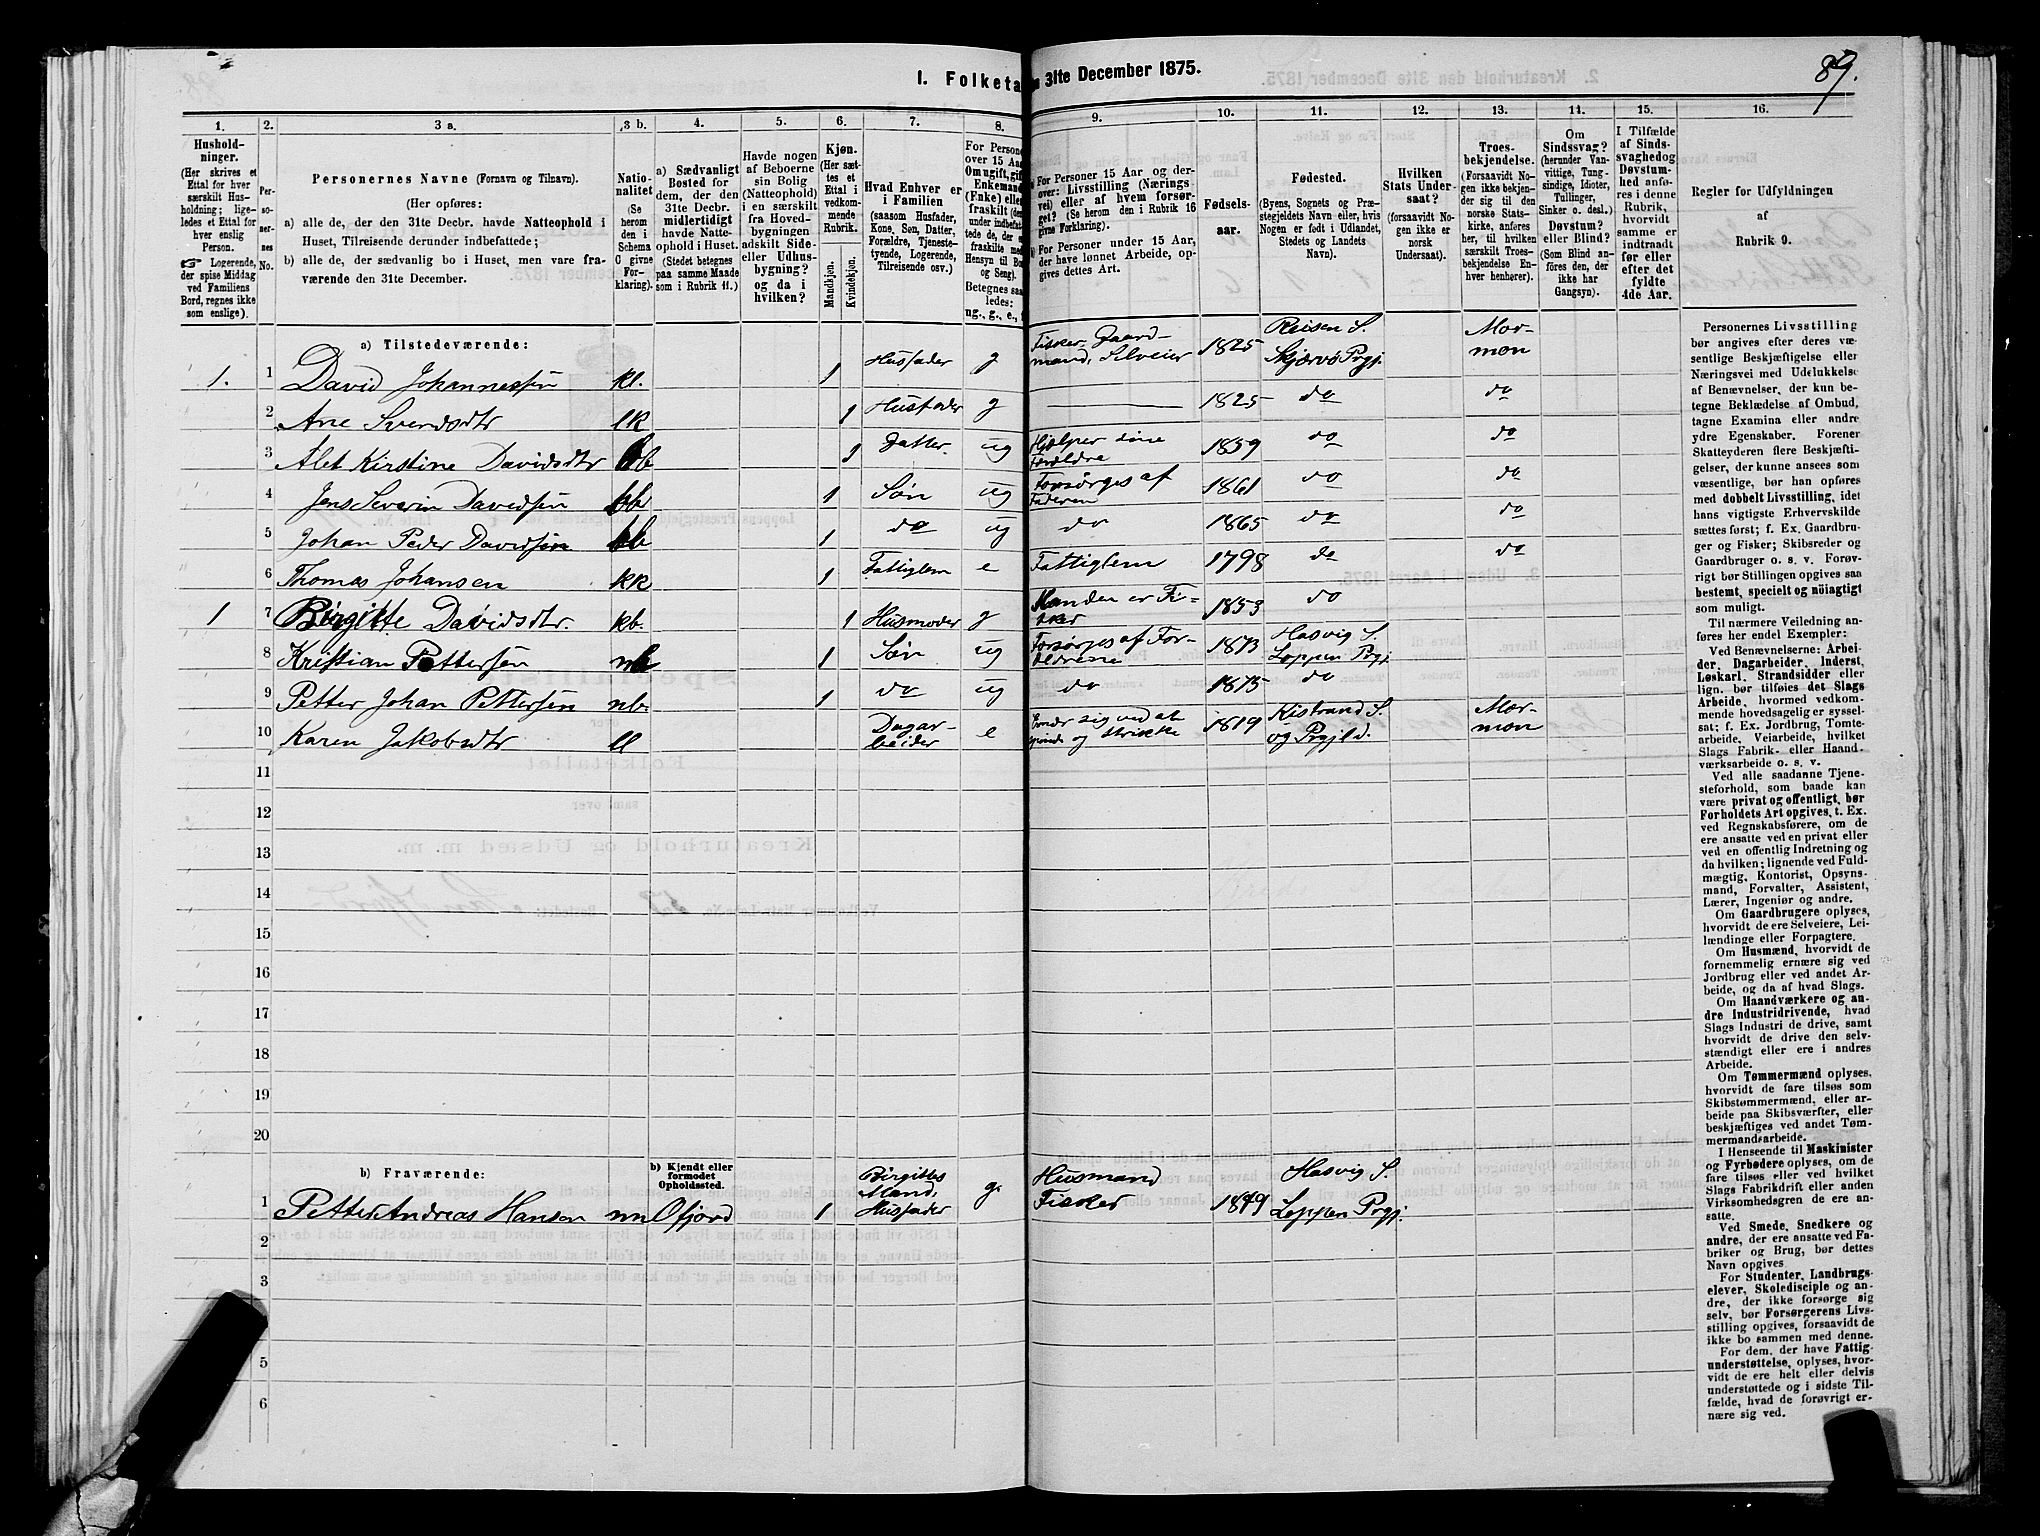 89.
I. Folketa
n 31te December 1875.
1. 2. 3 a. 3 b. 4. 5. 6. 7. 8. 9. 10. 11. 12. 13. 14. 15. 16.
Hushold-
ninger.
(Her skrives et
Ettal for hver
særskilt Hus-
holdning; lige-
ledes et Ettal
for hver enslig
Person.
☞ Logerende,
der spise Middag
ved Familiens
Bord, regnes ikke
som enslige).
Per-
so-
ner-
nes
No.
Personernes Navne (Fornavn og Tilnavn).
(Her opføres:
a) alle de, der den 31te Decbr. havde Natteophold i
Huset, Tilreisende derunder indbefattede;
b) alle de, der sædvanlig bo i Huset, men vare fra-
værende den 31te December.
Natio-
nalitet
(Se
herom
den i
Schema
C givne
For-
klaring).
a) Sædvanligt
Bosted for
dem, der den
31te Decbr.
midlertidigt
havde Natte-
ophold i Huset.
(Stedet betegnes
paa samme Maade
som i Rubrik 11.)
Havde nogen
af Beboerne
sin Bolig
(Natteophold)
i en særskilt
fra Hoved-
bygningen
adskilt Side-
eller Udhus-
bygning?
og da i
hvilken?
Kjøn.
(Her sæt-
tes et
Ettal i
vedkom-
mende
Rubrik.
Mandkjøn.
Kvindekjøn.
Hvad Enhver er
i Familien
(saasom Husfader,
Kone, Søn, Datter,
Forældre, Tjeneste-
tyende, Logerende,
Tilreisende osv.)
For Persone
over 15 Aar
Om ugift, gift
Enkemand
(Enke) eller
fraskilt (de
under indbefat-
tede de, der e
fraskilte m
Hensyn til Bo
og Seng).
Betegnes saa
ledes:
ug., g., e.,
For Personer 15 Aar og der-
over: Livsstilling (Nærings
vei) eller af hvem forsør-
get? (Se herom i Rubrik 16
givne Forklaring).
For Personer under 15 Aar,
der have lønnet Arbeide, op-
gives dettes Art.
Fødsels-
aar.
Fødested.
(Byens, Sognets og Præ-
stegjeldets Navn eller, hvis
Nogen er født i Udlandet,
Stedets og Landets
Navn).
Hvilken
Stats Under-
saat?
(forsaavidt No-
gen ikke er
norsk
Undersaat).
Troes-
bekjendelse.
(Forsaavidt No-
gen ikke bekjen-
der sig til den
norske Stats-
kirke, anføres
her, til hvilken
særskilt Troes-
bekjendelse En-
hver henhører).
Om
Sindssvag?
(herunder Van-
vittige, Tung-
sindige, Idioter,
Tullinger,
Sinker o. desl.)
Døvstum?
eller Blind?
(Som Blind an-
føres den, der
ikke har
Gangsyn).
I Tilfælde
af Sinds-
svaghed og
Døvstum-
hed anfø-
res i denne
Rubrik,
hvorvidt
samme er
indtraadt
før eller
efter det
fyldte
4de Aar.
Regler for Udfyldningen
af
Rubrik 9.
a) Tilstedeværende:
1. 1 David Johannessen kl. 1 Husfader g Fisker, Gaard-mand, Selveier 1825 Reisen S. Skjærvø Prgj. Mormon
2 Ane Svendsdtr lk 1 Husfader g 1825 do do
3 Alet Kirstine Davidsdtr 1 Datter. ug Hjelper sine Forældre 1859 do do
4 Jens Severin Davidsen 1 Søn ug Forsørges af Faderen 1861 do do
5 Johan Peder Davidsen 1 do ug do 1865 do do
6 Thomas Johansen kk 1 Fattiglem e Fattiglem 1798 do do
1 7 Birgitte Davidsdtr. kb. 1 Husmoder g Manden er Fisker 1853 do
8 Kristian Pettersen nb 1 Søn ug Forsørges af Forældrene 1873 Hasvig S. Loppen Prgj
9 Petter Johan Pettersen nb. 1 do ug do 1875 do
10 Karen Jakobsdtr ll Dagarbeider e Ernær sig ved at spinde og strikke 1819 Kistrand S. og Prgjld. Mormon
11
12
13
14
15
16
17
18
19
20
b) Fraværende:
b) Kjendt eller
formodet
Opholdssted.
1 Petter Andreas Hansen nn Ofjord 1 Birgittes Mand, Husfader g. Husmand Fisker 1849 Hasvig S. Loppen Prgj.
2
3
4
5
6
Personernes Livsstilling
bør angives efter deres væ-
sentlige Beskjæftigelse eller
Næringsvei med Udelukkelse
af Benævnelser, der kun be-
tegne Beklædelse af Ombud,
tagne Examina eller andre
ydre Egenskaber. Forener
Skatteyderen flere Beskjæfti-
gelser, der kunne ansees som
væsentlige, bør han opføres
med dobbelt Livsstilling, idet
hans vigtigste Erhvervskilde
sættes først; f. Ex. Gaardbru-
ger og Fisker; Skibsreder og
Gaardbruger o. s. v. Forøv-
rigt bør Stillingen opgives saa
bestemt, specielt og nöiagtigt
som muligt.
Til nærmere Veiledning an-
føres her endel Exempler:
Ved Benævnelserne: Arbei-
der, Dagarbeider, Inderst,
Løskarl, Strandsidder eller
lign. bør tilføies det Slags
Arbeide, hvormed vedkom-
mende hovedsagelig er syssel-
sat; f. Ex. Jordbrug, Tomte-
arbeide, Veiarbeide, hvilket
Slags Fabrik- eller Haand-
værksarbeide o. s. v.
Ved alle saadanne Tjene-
steforhold, som baade kan
være privat og offentligt, bør
Forholdets Art opgives, t. Ex.
ved Regnskabsførere, om de
ere ansatte ved en privat eller
ved en offentlig Indretning og
da hvilken; lignende ved Fuld-
mægtig, Kontorist, Opsyns-
mand, Forvalter, Assistent,
Lærer, Ingeniør og andre.
Om Gaardbrugere oplyses,
hvorvidt de ere Selveiere, Lei-
lændinge eller Forpagtere.
Om Husmænd, hvorvidt de
fornemmelig ernære sig ved
Jordbrug eller ved andet Ar-
beide, og da af hvad Slags.
Om Haandværkere og an-
dre Industridrivende, hvad
Slags Industri de drive, samt
hvorvidt de drive den selv-
stændigt eller ere i andres
Arbeide.
Om Tømmermænd oplyses,
hvorvidt de fare tilsøs som
Skibstømmermænd, eller ar-
beide paa Skibsværfter, eller
beskjæftiges ved andet Tøm-
mermandsarbeide.
I Henseende til Maskinister
og Fyrbødere oplyses, om de
fare tilsøs eller ved hvilket
Slags Fabrikdrift eller anden
Virksomhedsgren de ere an-
satte.
Ved Smede, Snedkere og
andre, der ere ansatte ved Fa-
briker og Brug, bør dettes
Navn opgives
For Studenter, Landbrugs-
elever, Skoledisciple og an-
dre, der ikke forsørge sig
selv, bør Forsørgerens Livs-
stilling opgives, forsaavidt de
ikke bo sammen med denne.
For dem, der have Fattig-
understøttelse, oplyses, hvor-
vidt de ere helt eller delvis
understøttede og i sidste Til-
fælde, hvad de forøvrigt er-
nære sig ved.